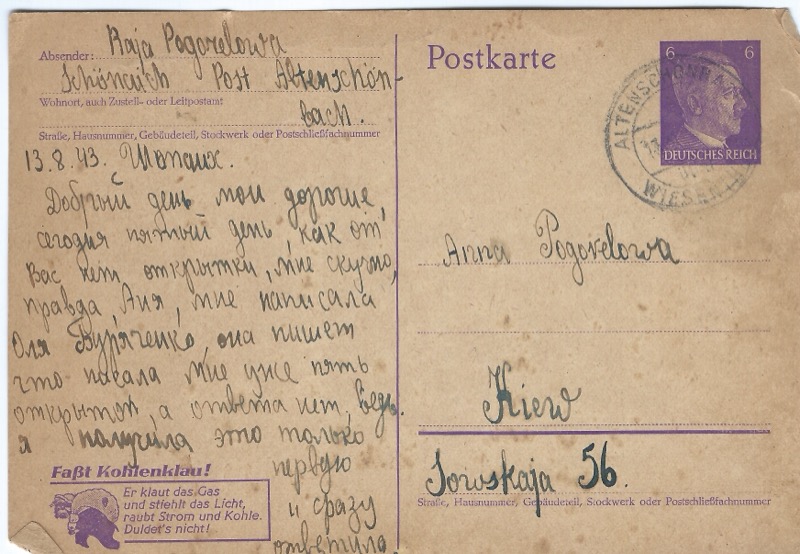 Absender: Raja Pogorelowa
Schöneich Post Altenschön-
Wohnort, auch Zustell- oder Leitpostamt
bach.
Straße, Hausnummer, Gebäudeteil, Stockwerk oder Postschließfachnummer
13.8.43.
Добрый день мои дорогие,
сегодня пятый день, как от
Вас нет открытки, мне скучно,
правда, Аня, мне написала
Оля Буряченко, она пишет
что писала мне уже пять
открыток, а ответа нет, Ведь
я получила это только
первую
и сразу
ответила.
Faßt Kohlenklau!
Er klaut das Gas
und stiehlt das Licht,
raubt Strom und Kohle.
Duldet's nicht!
Postkarte
6 6
DEUTSCHES REICH
ALTENSCHÖNBACH
WIESEN
Anna Pogorelowa
Kiew
Sowskaja 56.
Straße, Hausnummer, Gebäudeteil, Stockwerk oder Postschließfachnummer